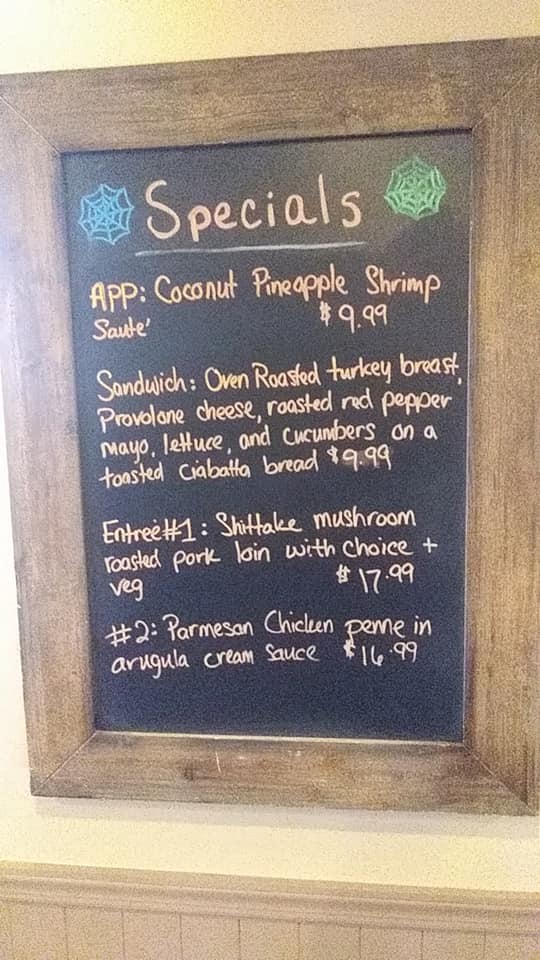 Specials
APP: Coconut Pineapple Shrimp
Sauté $9.99
Sandwich: Oven Roasted turkey breast,
Provolone cheese, roasted red pepper
mayo, lettuce, and cucumbers on a
toasted Ciabatta bread $9.99
Entreé #1: Shittake mushroom
roasted pork loin with choice +
veg $17.99
#2: Parmesan Chicken penne in
arugula cream sauce $16.99